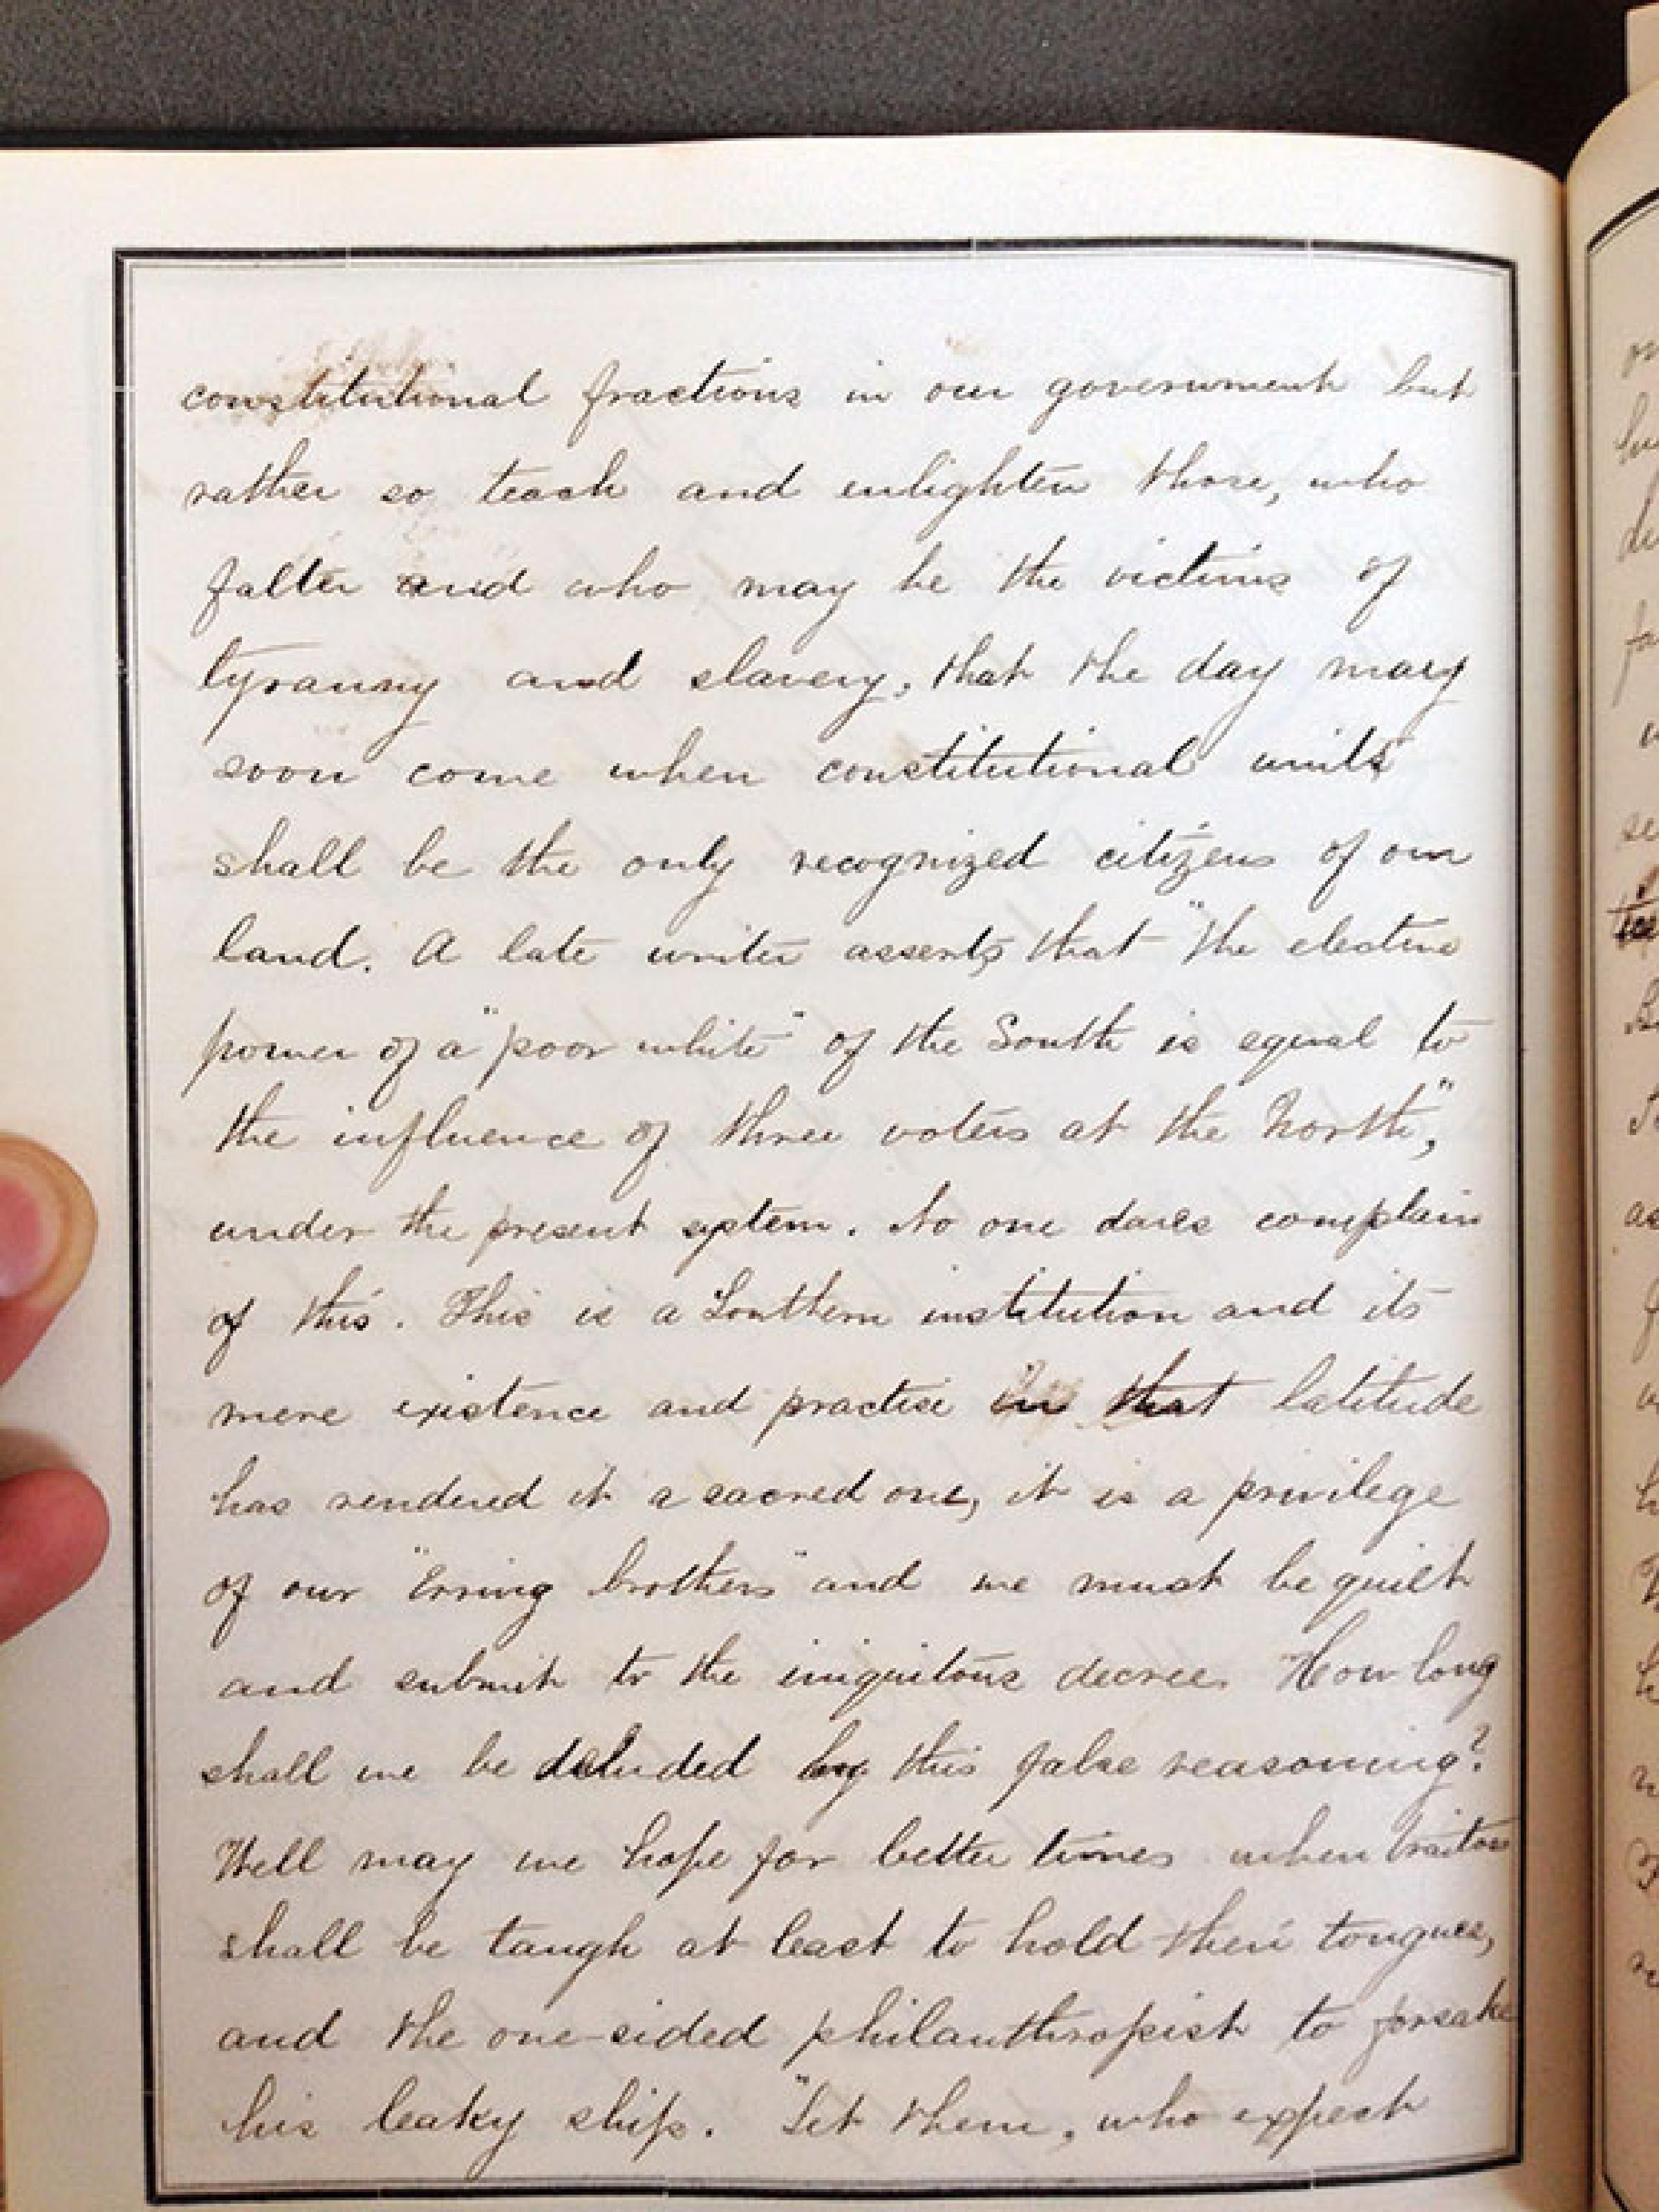 constitutional fractions in our government but
rather so teach and enlighten those, who
falter and who may be the victims of
tyranny and slavery, that the day may
soon come when constitutional units
shall be the only recognized citizens of our
land. A late writer asserts that "the elective
power of a "poor white" of the South is equal to
the influence of three voters at the North,"
under the present system. No one dares complain
of this. This is a Southern institution and its
mere existence and practise in that latitude
has rendered it a sacred one, it is a privilege
of our "erring brothers" and we must be quiet
and submit to the iniquitous decree. How long
shall we be deluded by this false reasoning?
Well may we hope for better times when traitors
shall be taugh at least to hold their tongues,
and the one-sided philanthropist to forsake
his leaky ship. "Let them, who expect